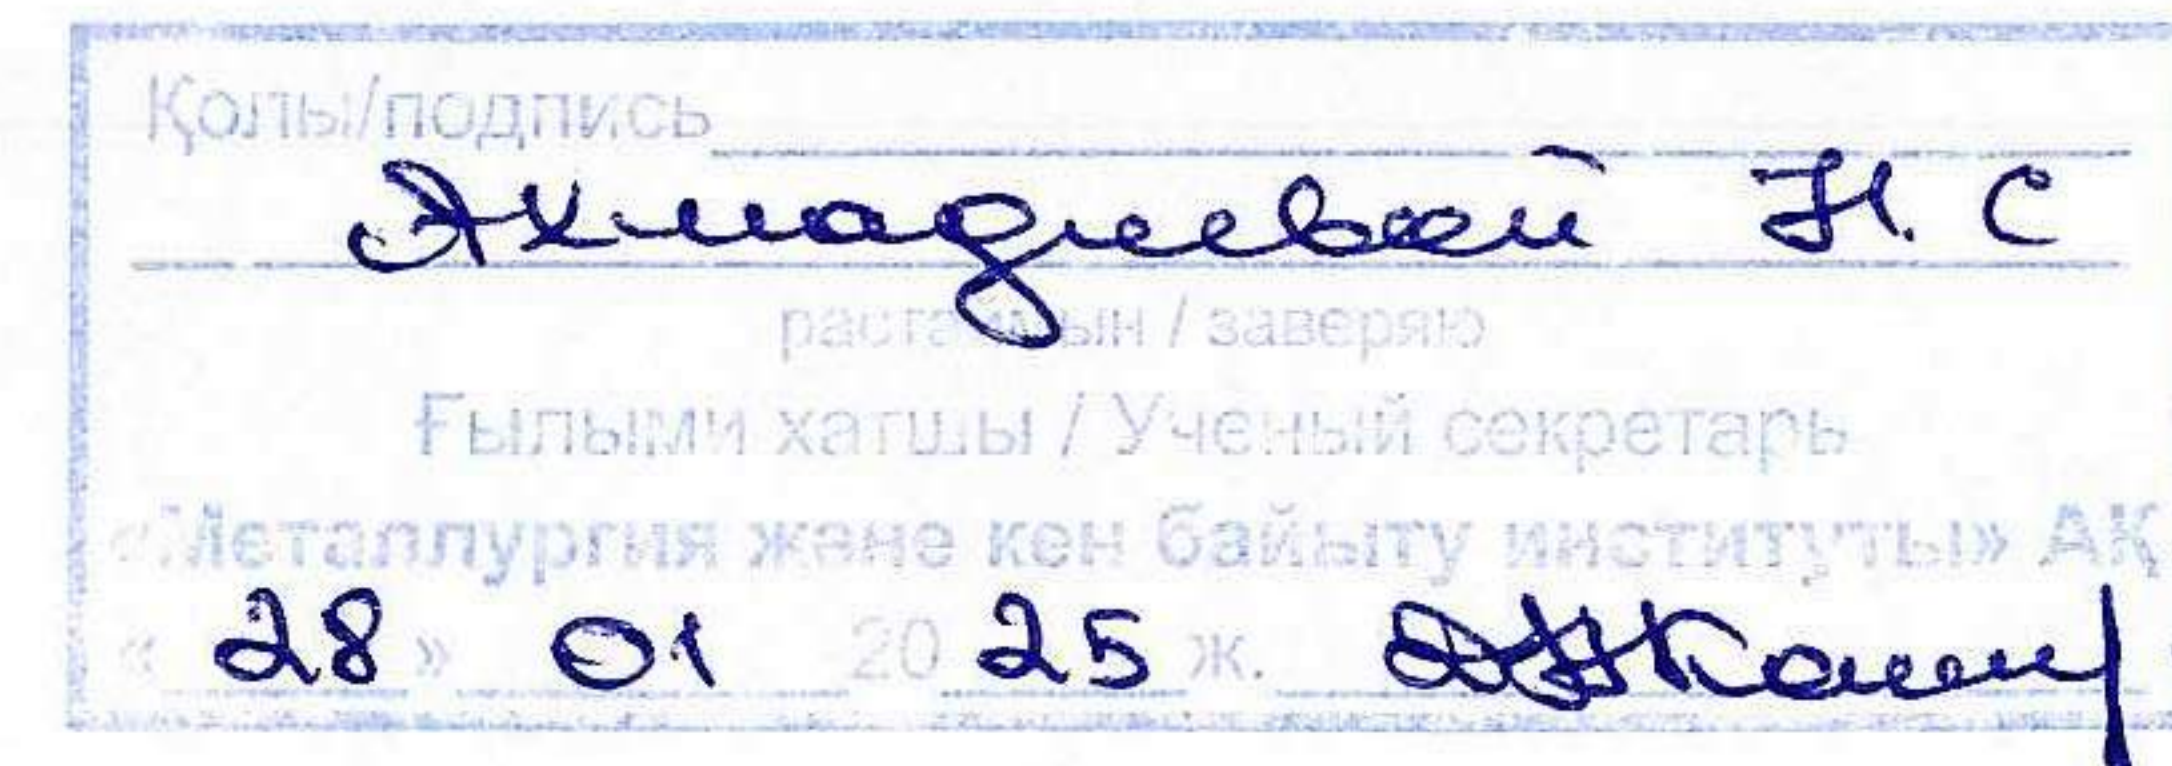 Қолы/подпись
Ахмадиевой Н. С
растаймын / заверяю
Ғылыми хатшы / Ученый секретарь
«Металлургия және кен байыту институты» АҚ
« 28 » 01 20 25 ж.